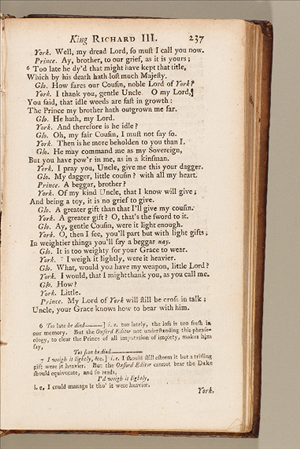 King RICHARD III. 237
York. Well, my dread Lord, so must I call you now.
Prince. Ay, brother, to our grief, as it is yours;
6 Too late he dy'd that might have kept that title,
Which by his death hath lost much Majesty.
Glo. How fares our Cousin, noble Lord of York?
York. I thank you, gentle Uncle. O my Lord,
You said, that idle weeds are fast in growth:
The Prince my brother hath outgrown me far.
Glo. He hath, my Lord.
York. And therefore is he idle?
Glo. Oh, my fair Cousin, I must not say so.
York. Then is he more beholden to you than I.
Glo. He may command me as my Sovereign,
But you have pow'r in me, as in a kinsman.
York. I pray you, Uncle, give me this your dagger.
Glo. My dagger, little cousin? with all my heart.
Prince. A beggar, brother?
York. Of my kind Uncle, that I know will give;
And being a toy, it is no grief to give.
Glo. A greater gift than that I'll give my cousin.
York. A greater gift? O, that's the sword to it.
Glo. Ay, gentle Cousin, were it light enough.
York. O, then I see, you'll part but with light gifts;
In weightier things you'll say a beggar nay.
Glo. It is too weighty for your Grace to wear.
York. 7 I weigh it lightly, were it heavier.
Glo. What, would you have my weapon, little Lord?
York. I would, that I might thank you, as you call me.
Glo. How?
York. Little.
Prince. My Lord of York will still be cross in talk;
Uncle, your Grace knows how to bear with him.
6 Too late he died——] i. e. too lately, the loss is too fresh in
our memory. But the Oxford Editor not understanding this phrase-
ology, to clear the Prince of all imputation of impiety, makes him
say,
Too soon he died——
7 I weigh it lightly, &c.] i. e. I should still esteem it but a trifling
gift were it heavier. But the Oxford Editor cannot bear the Duke
should equivocate, and so reads,
I'd weigh it lightly,
i. e. I could manage it tho' it were heavier.
York.